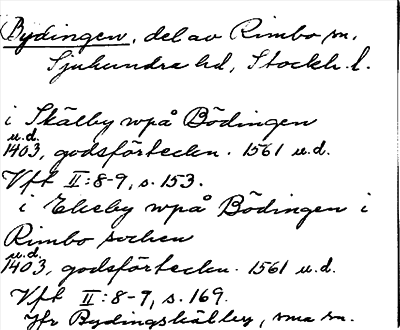 (Bydingen, del av Rimbo sn.
Sjuhundra hd, Stockh. l.
i Skälby uppå Bödingen
u.d.
1403, godsförteckn. 1561 u.d.
Vft II:8-9, s. 153.
i Ekeby uppå Bödingen i
Rimbo sochen
u.d.
1403, godsförteckn. 1561 u.d.
Vft II:8-9, s. 169.
Jfr Bydingskälby, sma sn.